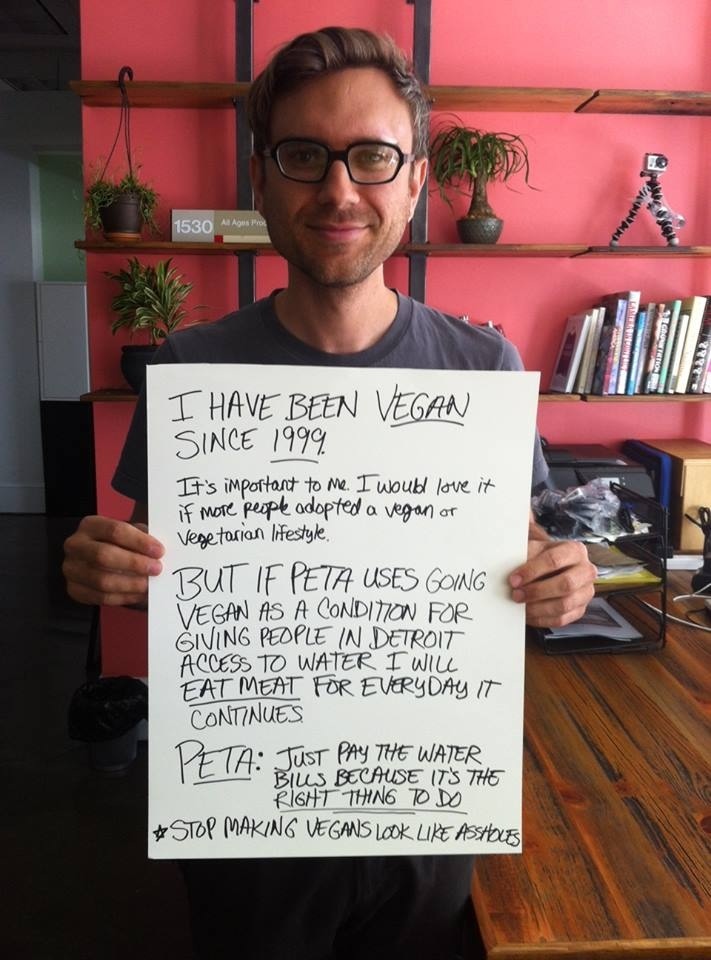 1530 All Ages Pro
I HAVE BEEN VEGAN
SINCE 1999.
It's important to me. I would love it
if more people adopted a vegan or
vegetarian lifestyle.
BUT IF PETA USES GOING
VEGAN AS A CONDITION FOR
GIVING PEOPLE IN DETROIT
ACCESS TO WATER I WILL
EAT MEAT FOR EVERYDAY IT
CONTINUES.
PETA: JUST PAY THE WATER
BILLS BECAUSE IT'S THE
RIGHT THING TO DO
* STOP MAKING VEGANS LOOK LIKE ASSHOLES